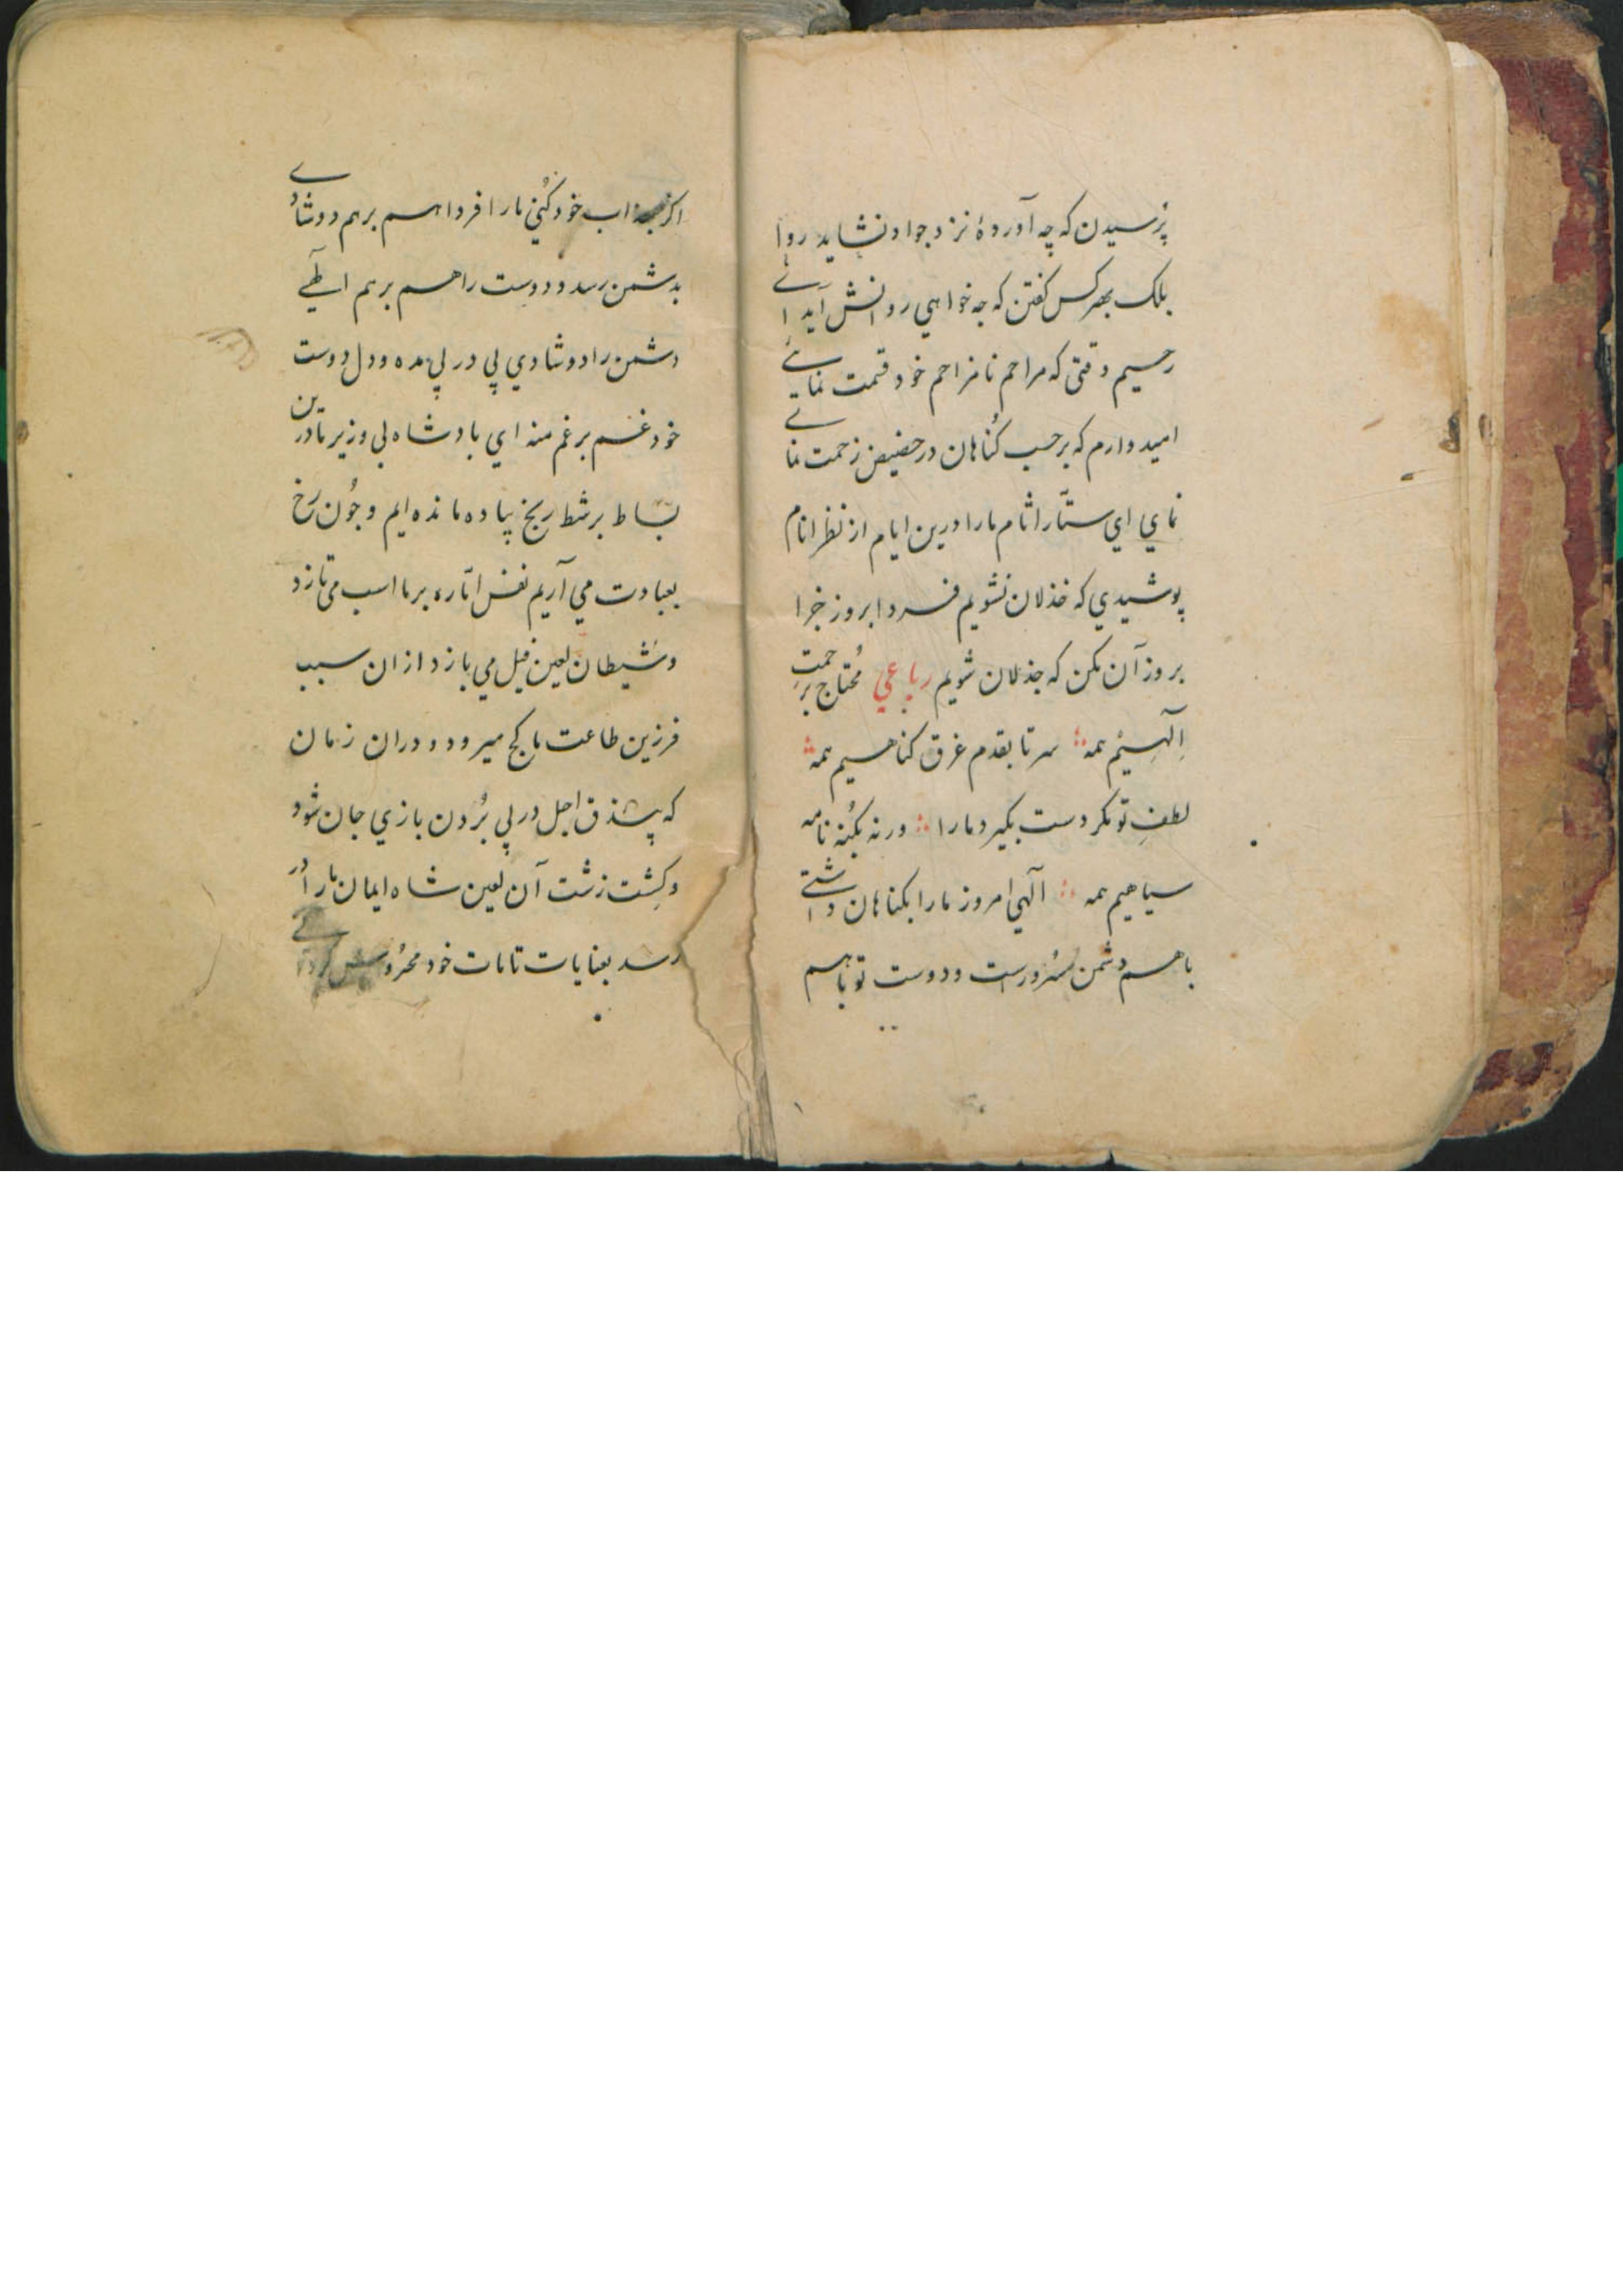 پُرسیدن که چه آوردهٔ نزد جواد نشاید روا
بلک بهر کس کفتن که چه خواهي روانش آید ای
رحیم وقتی که مراحم نامزاحم خود قسمت نمایے
امیدوارم که برحسب کُناهان در حضیض زحمت نما
نماي اي ستّار اثام ما را درین ایام از نظر انام
پوشیدي که خذلان نشویم فردا بروز جزا
بروز آن مکن که جذلان شویم رباعي مُحتاج برحمتِ
اِلٓهیِم همه سر تا بقدم غرق کناهیم همه
لطفِ تو مکر دست بکیرد ما را ورنه بکُنه نامه
سیاهیم همه الٓهي امروز ما را بکناهان داشتے
با هم دشمن مسُرورست و دوست تو با هم
اکر بعذاب خود کُني ما را فردا هم برهم دو شادے
بدشمن رسد و دوست را هم برهم الٓهے
دشمن را دو شادي پي در پي مده و دل دوست
خود غم بر غم منه اي بادشاه بي وزیر ما درین
بساط بر شطرنج پیاده مانده ایم و چُون رُخ
بعبادت مي آریم نفس امّاره بر ما اسب مي تازد
و شیطان لعین فیل مي بازد ازان سبب
فرزین طاعت ما کج میرود و دران زمان
که پیذق اجل در پي بُردن بازي جان شود
و کِشت زشت آن لعین شاه ایمان ما را در
رسد بعنایات تامات خود محرُوسش